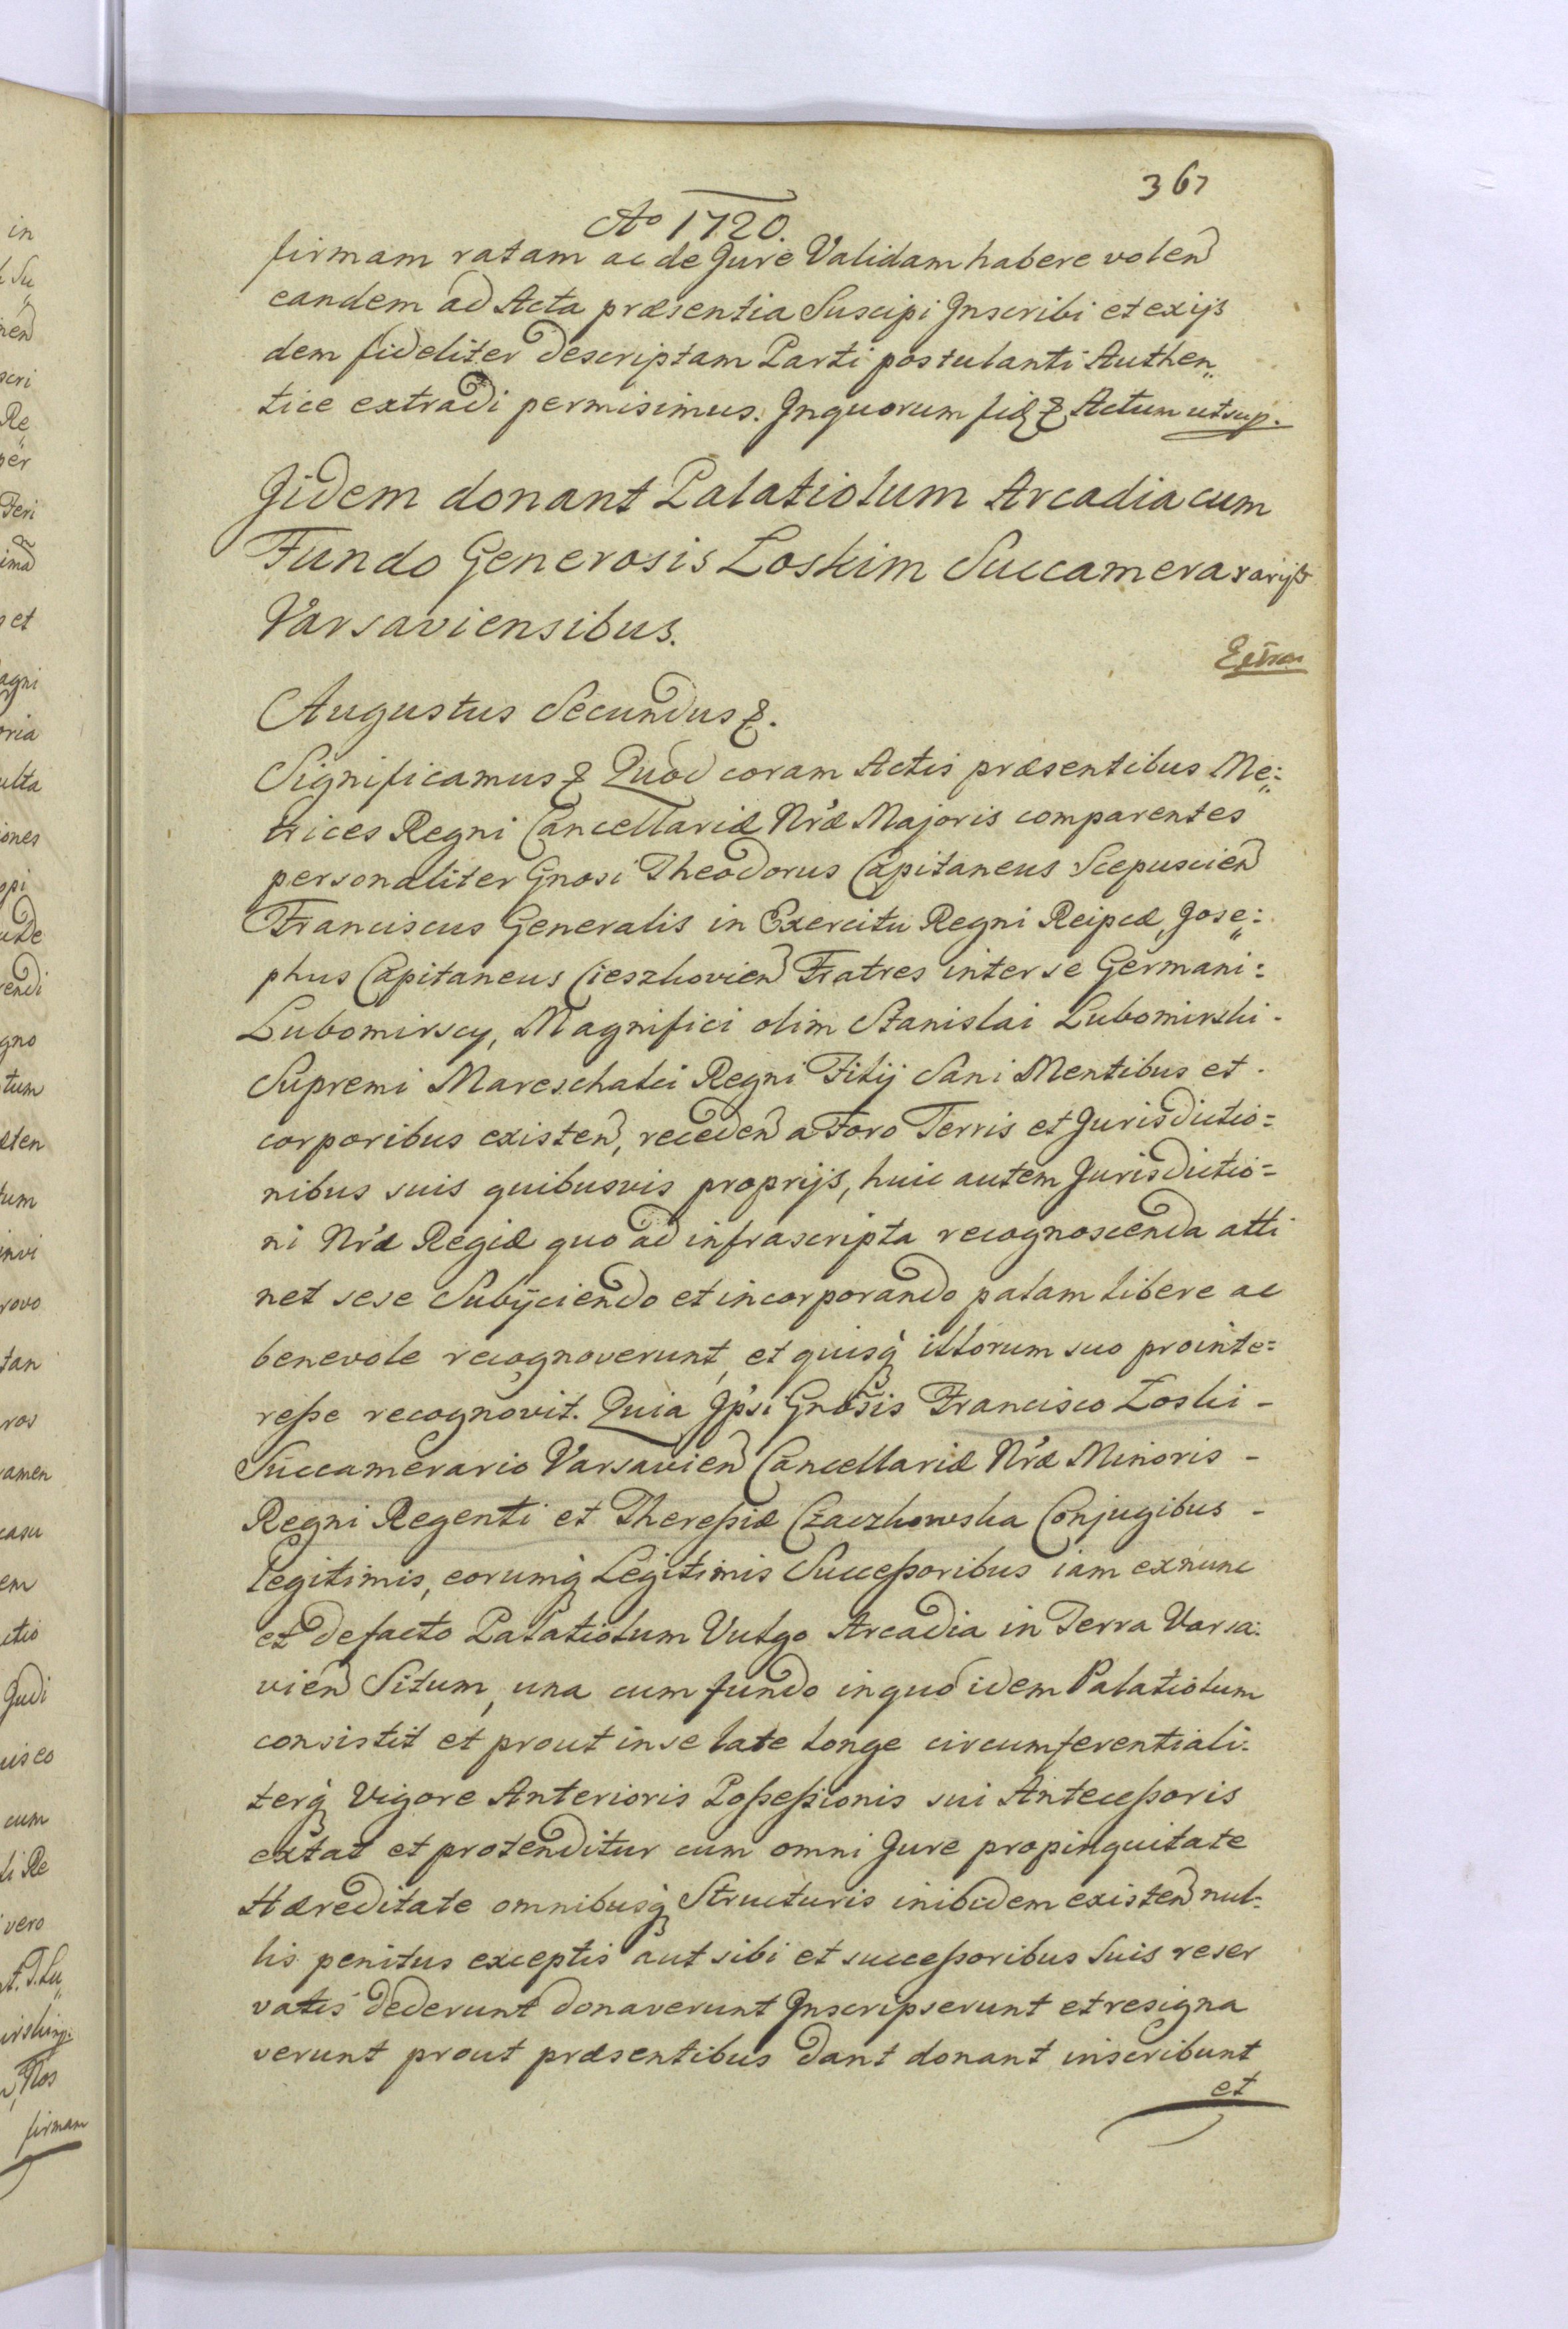 367
Ao 1720.
firmam ratam ac de Jure Validam habere volen
eandem ad Acta præsentia Suscipi Inscribi et exijs
dem fideliter descriptam Parti postulanti Authen„
tice extradi permisimus. Inquorum fid & Actum utsup.
Iidem donant Palatiolum Arcadia cum
Fundo Generosis Loskim Succamerararijs
Varsaviensibus.
Augustus Secundus &.
Significamus & Quod coram Actis præsentibus Me„
trices Regni Cancellariæ Nræ Majoris comparentes
personaliter Gnosi Theodorus Capitaneus Scepuscien
Franciscus Generalis in Exercitu Regni Reipcæ, Jose„
phus Capitaneus Cieszkovien Fratres inter se Germani=
Lubomirscy, Magnifici olim Stanislai Lubomirski -
Supremi Mareschalci Regni Filij Sani Mentibus et -
corporibus existen, receden a Foro Terris et Jurisdictio=
nibus suis quibusvis proprijs, huic autem Jurisdictio=
ni Nræ Regiæ quo ad infrascripta recognoscenda atti
net sese Subijciendo et incorporando palam libere ac
benevole recognoverunt, et quisq illorum suo prointe=
reße recognovit. Quia Ipsi Gnosis Francisco Loski -
Succamerario Varsavien Cancellariæ Nræ Minoris -
Regni Regenti et Thereßiæ Czaczkowska Conjugibus -
Legitimis, eorumq Legitimis Succeßoribus iam exnunc
et defacto Palatiolum Vulgo Arcadia in Terra Varsa:
vien Situm, una cum fundo inquo idem Palatiolum
consistit et prout inse late longe circumferentiali:
terq Vigore Anterioris Poßeßionis sui Anteceßoris
extat et protenditur cum omni Jure propinquitate
Hæreditate omnibusq Structuris inibidem existen nul=
lis penitus exceptis aut sibi et succeßoribus Suis reser
vatis dederunt donaverunt Inscripserunt et resigna
verunt prout præsentibus dant donant inscribunt
et